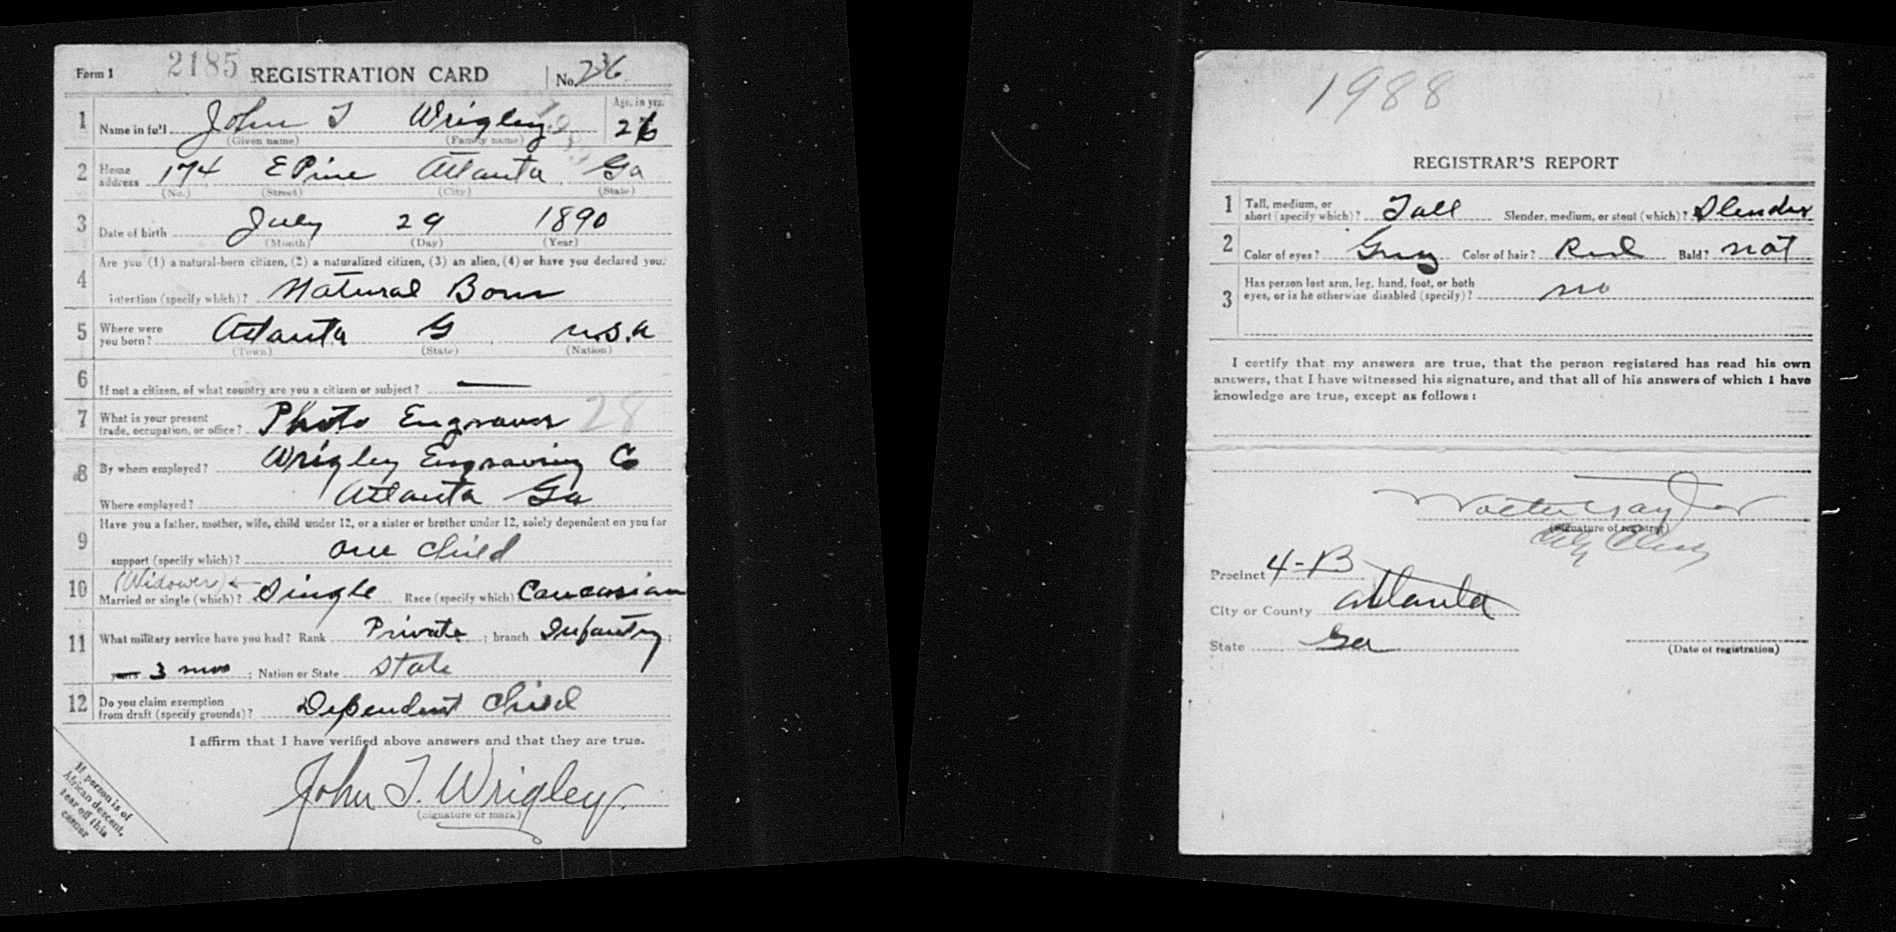 Form 1 2185 REGISTRATION CARD No. 236
1 Name in full John T Wrigley Age, in yrs. 26
(Given name) (Family name)
2 Home address 174 E Pine Atlanta Ga
(No.) (Street) (City) (State)
3 Date of birth July 29 1890
(Month) (Day) (Year)
4 Are you (1) a natural-born citizen, (2) a naturalized citizen, (3) an alien, (4) or have you declared your
intention (specify which)? Natural Born
5 Where were you born? Atlanta G U.S.A
(Town) (State) (Nation)
6 If not a citizen, of what country are you a citizen or subject? —
7 What is your present trade, occupation, or office? Photo Engraver 28
8 By whom employed? Wrigley Engraving Co
Where employed? Atlanta Ga
9 Have you a father, mother, wife, child under 12, or a sister or brother under 12, solely dependent on you for
support (specify which)? one child
(Widower)
10 Married or single (which)? Single Race (specify which) Caucasian
11 What military service have you had? Rank Private ; branch Infantry ;
years 3 mos ; Nation or State State
12 Do you claim exemption from draft (specify grounds)? Dependent Child
I affirm that I have verified above answers and that they are true.
John T. Wrigley
(Signature or mark)
If person is of
African descent,
tear off this
corner
1988
REGISTRAR'S REPORT
1 Tall, medium, or short (specify which)? Tall Slender, medium, or stout (which)? Slender
2 Color of eyes? Grey Color of hair? Red Bald? not
3 Has person lost arm, leg, hand, foot, or both eyes, or is he otherwise disabled (specify)? no
I certify that my answers are true, that the person registered has read his own
answers, that I have witnessed his signature, and that all of his answers of which I have
knowledge are true, except as follows:
Walter Taylor
(Signature of registrar)
City Clerk
Precinct 4-B
City or County Atlanta
State Ga
(Date of registration)